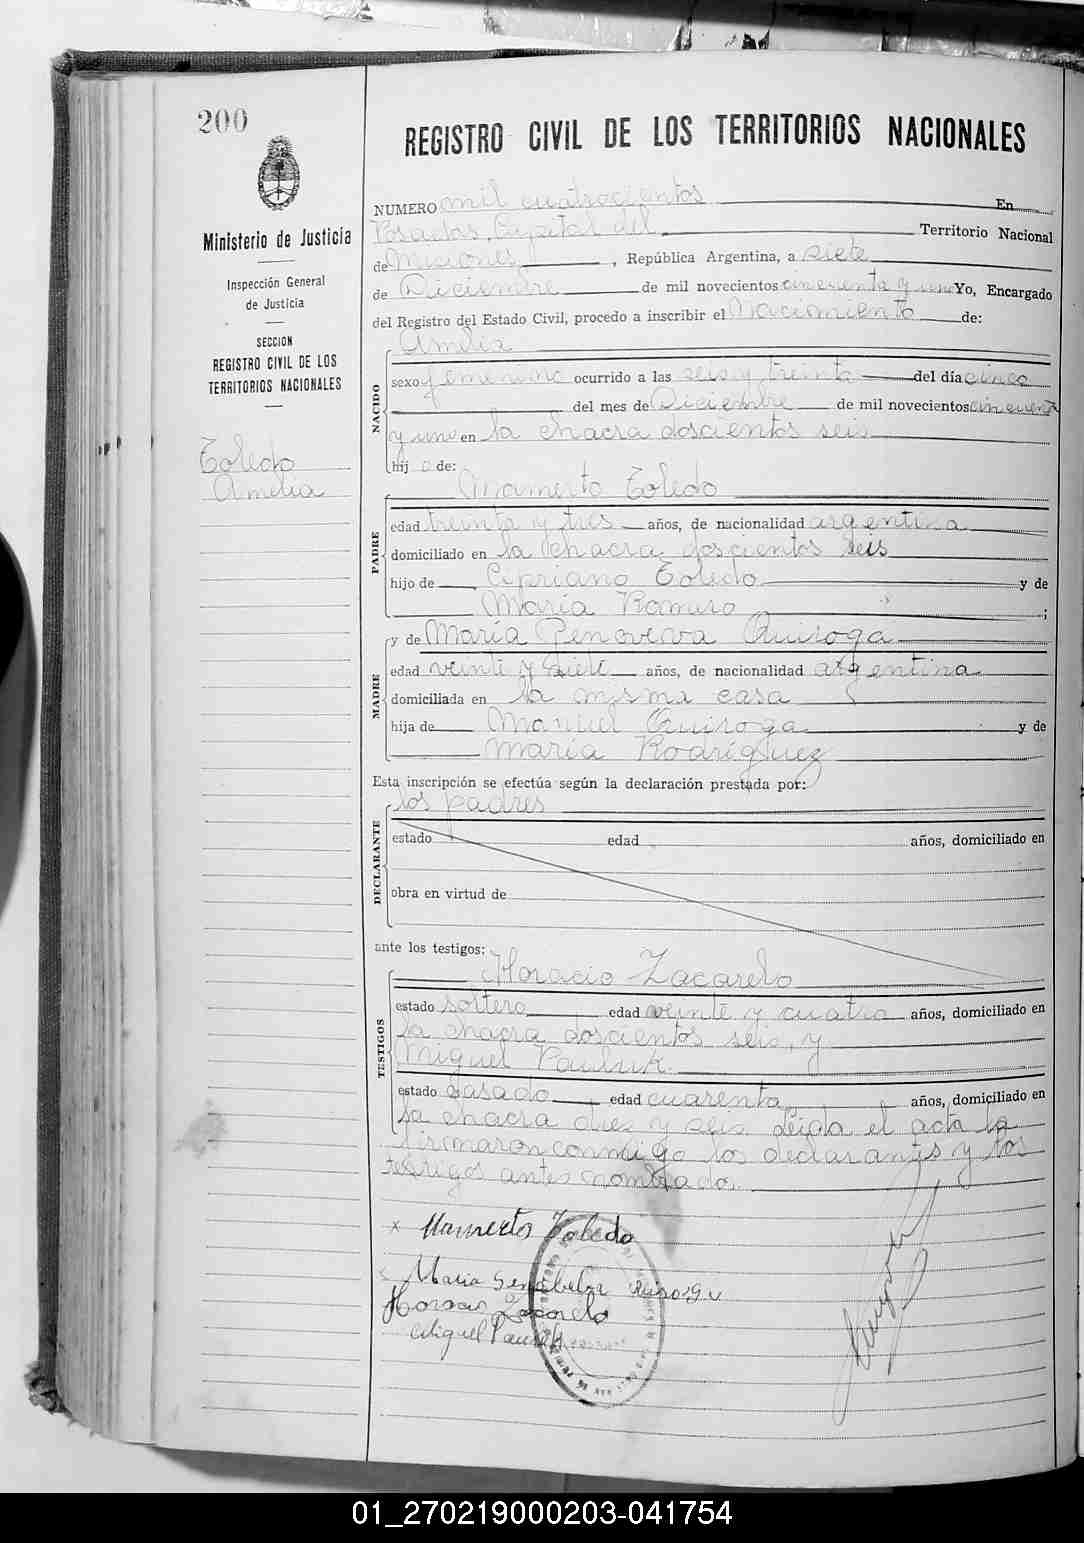 200
REGISTRO CIVIL DE LOS TERRITORIOS NACIONALES
Ministerio de Justicia
Inspección General
de Justicia
SECCION
REGISTRO CIVIL DE LOS
TERRITORIOS NACIONALES
Toledo
Amelia
NUMERO mil cuatrocientos En
Posadas, Capital del Territorio Nacional
de Misiones, República Argentina, a siete
de Diciembre de mil novecientos cincuenta y uno Yo, Encargado
del Registro del Estado Civil, procedo a inscribir el Nacimiento de:
Amelia
NACIDO
sexo femenino ocurrido a las seis y treinta del día cinco
del mes de Diciembre de mil novecientos cincuenta
y uno en la chacra doscientos seis
hij a de:
Mamerto Toledo
PADRE
edad treinta y tres años, de nacionalidad argentina
domiciliado en la chacra doscientos seis
hijo de Cipriano Toledo y de
María Romero ;
y de María Genoveva Quiroga
MADRE
edad veinte y siete años, de nacionalidad argentina
domiciliada en la misma casa
hija de Manuel Quiroga y de
María Rodríguez
Esta inscripción se efectúa según la declaración prestada por:
los padres
DECLARANTE
estado edad años, domiciliado en
obra en virtud de
ante los testigos:
Horacio Zacarelo
TESTIGOS
estado soltero edad veinte y cuatro años, domiciliado en
la chacra doscientos seis, y
Miguel
estado casado edad cuarenta años, domiciliado en
la chacra dies y seis. Leida el acta la
firmaron conmigo los declarantes y los
testigos antes nombrado.
x Mamerto Toledo
Maria
Horacio Zacarelo
Miguel
01_270219000203-041754